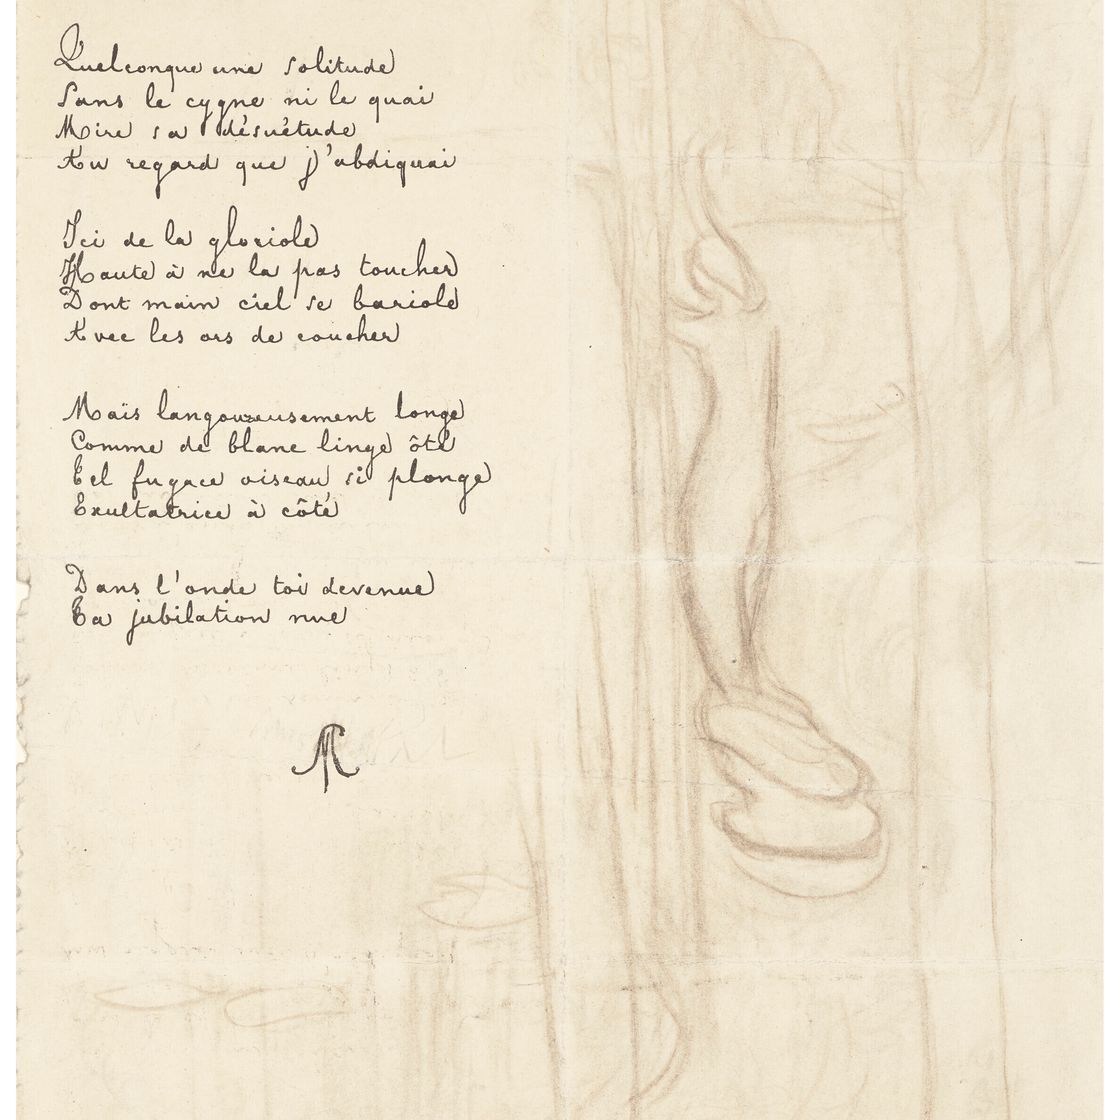 Quelconque une solitude
Sans le cygne ni le quai
Mire sa désuétude
Au regard que j'abdiquai
Ici de la gloriole
Haute à ne la pas toucher
Dont main ciel se bariole
Avec les ors de coucher
Maïs langoureusement longe
Comme de blanc linge ôté
Tel fugace oiseau si plonge
Exultatrice à côté
Dans l'onde toi devenue
Ta jubilation nue